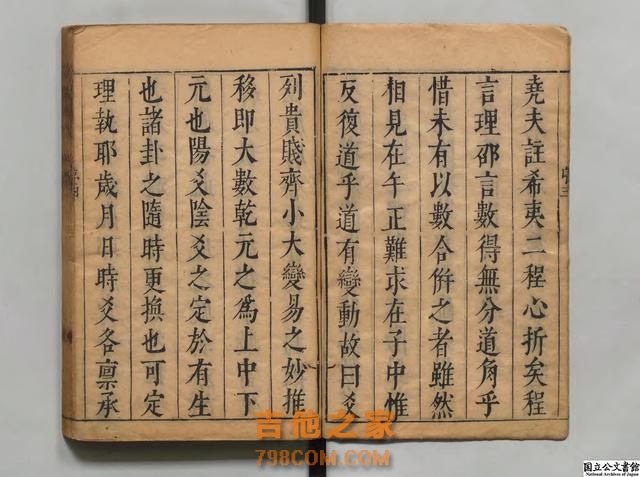 堯夫註希夷二程心折矣程
言理邵言數得無分道角乎
惜未有以數合併之者雖然
相見在午正難求在子中惟
反復道乎道有變動故曰爻
列貴賤齊小大變易之妙推
移即大數乾元之爲上中下
元也陽爻陰爻之定於有生
也諸卦之隨時更換也可定
理執耶歲月日時爻各禀承
吉他之家
798COM.COM
国立公文書館
National Archives of Japan